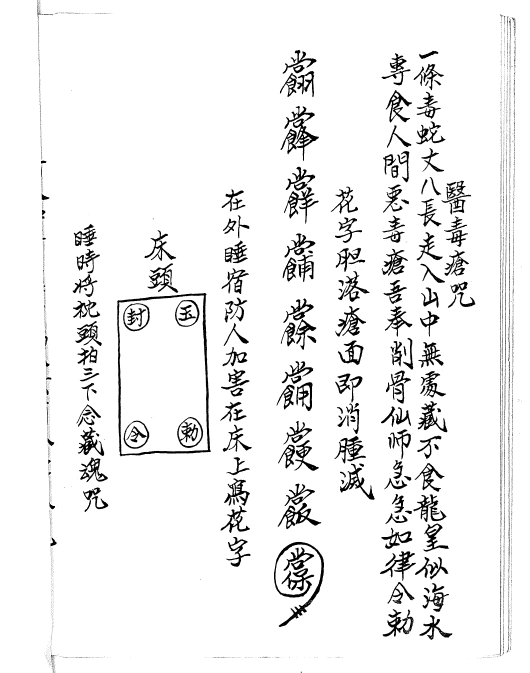 醫毒瘡咒
一條毒蛇丈八長走入山中無處藏不食龍皇似海水
專食人間惡毒瘡吾奉削骨仙师急急如律令勅
花字胆落瘡面即消腫滅
在外睡宿防人加害在床上寫花字
床頭
玉
封
勅
令
睡時將枕頭拍三下念藏魂咒